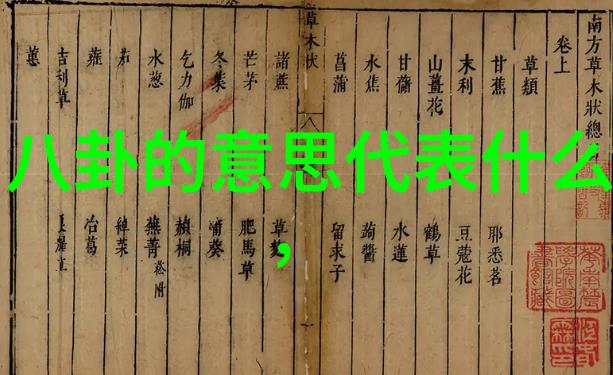 八卦的意思代表什么
，
南方草木狀總
卷上
草類
甘蕉 耶悉茗
末利 豆蔻花
山薑花 鶴草
甘藷 水蓮
水蕉 蒟醬
菖蒲 留求子
草木狀
諸蔗 草麴
芒茅 肥馬草
冬葉 蒲葵
乞力伽 赬桐
水葱 蕪菁 菘附
茄 綽菜
蕹 冶葛
吉利草
蕙